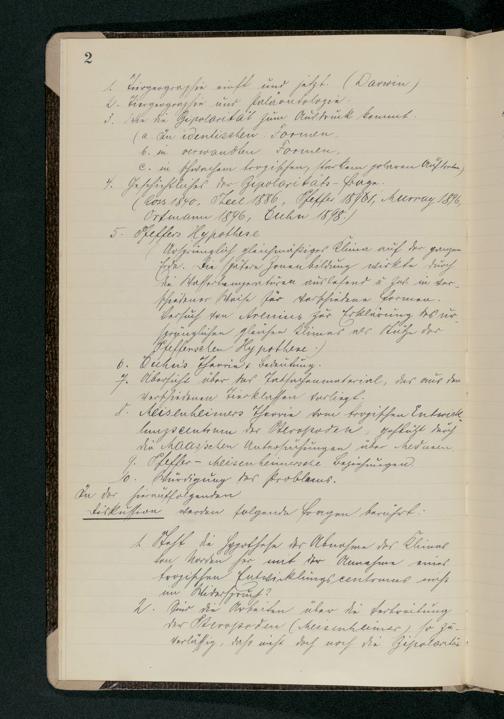 2
1. Tiergeographie einst und jetzt. (Darwin)
2. Tiergeographie und Paläontologie.
3. Wie die Bipolarität zum Ausdruck kommt.
(a. In identischen Formen.
b. in verwandten Formen,
c. in schwachem tropischen, starkem polaren Auftreten)
4. Geschichtliches der Bipolaritäts-Frage.
(Ross 1840, Théel 1886, Pfeffer 1891, Murray 1896,
Ortmann 1896, Chun 1898.)
5. Pfeffers Hypothese
(Ursprünglich gleichmäßiges Klima auf der ganzen
Erde. Die spätere Zonenbildung wirkte durch
die Wassertemperaturen auslesend u. zwar in ver-
schiedener Weise für verschiedene Formen.
Versuch von Arrhenius zur Erklärung des ur-
sprünglichen gleichen Klimas als Stütze der
Pfefferschen Hypothese.)
6. Chun's Theorie u. Bedeutung.
7. Übersicht über das Tatsachenmaterial, das aus den
verschiedenen Tierklassen vorliegt.
8. Meisenheimers Theorie vom tropischen Entwick-
lungscentrum der Pteropoden, gestützt durch
die Maasschen Untersuchungen über Medusen
9. Pfeffer-Meisenheimersche Beziehungen
10. Würdigung des Problems.
In der herauffolgenden
Diskussion werden folgende Fragen berührt:
1. Steht die Hypothese der Abnahme des Klimas
von Norden her mit der Annahme eines
tropischen Entwicklungscentrums nicht
im Widerspruch?
2. Sind die Arbeiten über die Verbreitung
der Pteropoden (Meisenheimer) so zu-
verläßig, daß nicht doch noch die Bipolarität